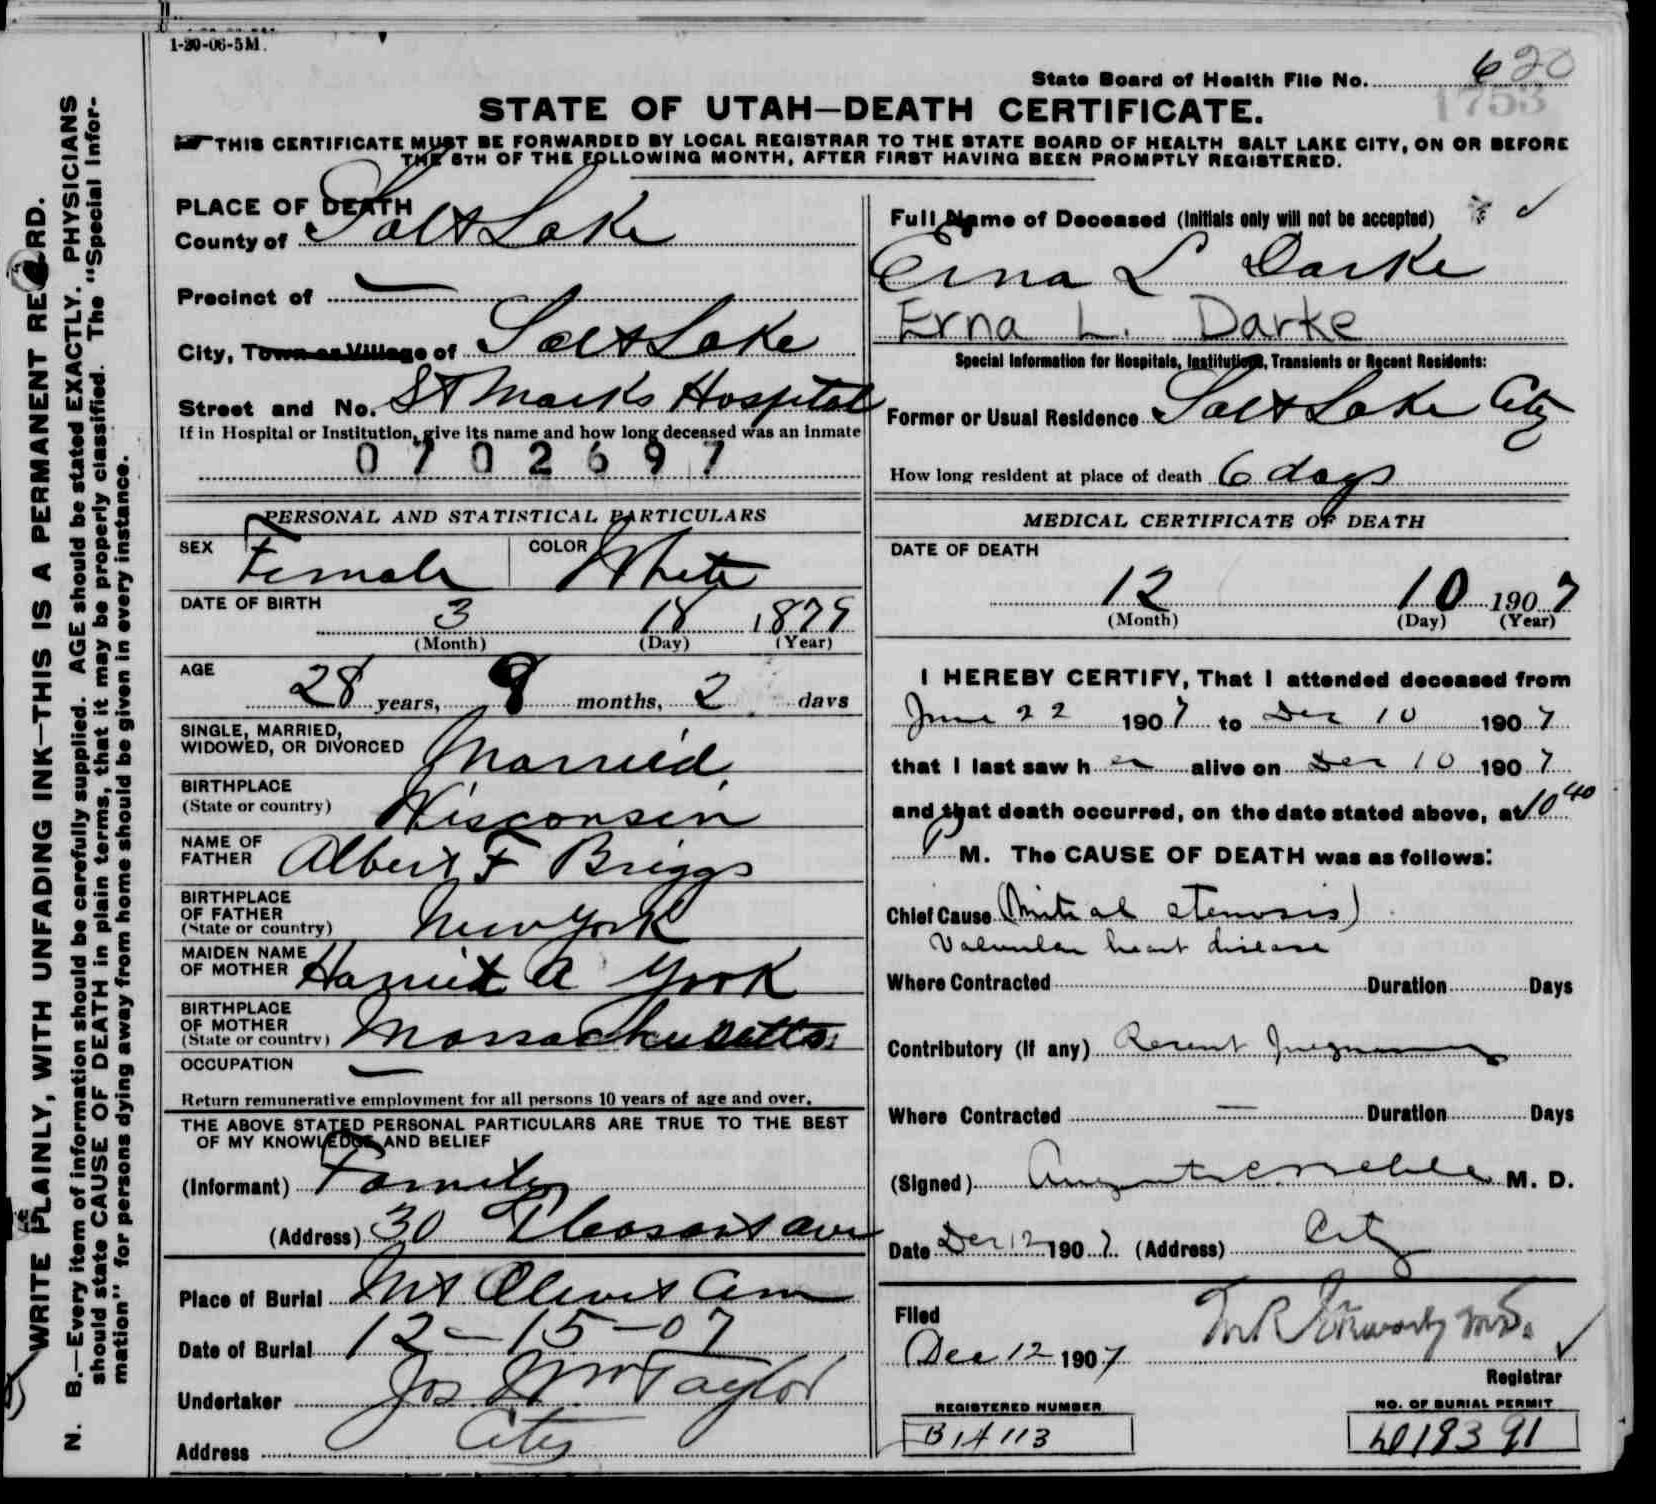 1-20-06-5M.
State Board of Health File No. 620
1753
STATE OF UTAH—DEATH CERTIFICATE.
THIS CERTIFICATE MUST BE FORWARDED BY LOCAL REGISTRAR TO THE STATE BOARD OF HEALTH SALT LAKE CITY, ON OR BEFORE
THE 5TH OF THE FOLLOWING MONTH, AFTER FIRST HAVING BEEN PROMPTLY REGISTERED.
WRITE PLAINLY, WITH UNFADING INK—THIS IS A PERMANENT RECORD.
N. B.—Every item of information should be carefully supplied. AGE should be stated EXACTLY. PHYSICIANS
should state CAUSE OF DEATH in plain terms, that it may be properly classified. The "Special Infor-
mation" for persons dying away from home should be given in every instance.
PLACE OF DEATH
County of Salt Lake
Precinct of —
City, Town or Village of Salt Lake
Street and No. St Marks Hospital
If in Hospital or Institution, give its name and how long deceased was an inmate
0702697
PERSONAL AND STATISTICAL PARTICULARS
SEX Female COLOR White
DATE OF BIRTH
3 18 1879
(Month) (Day) (Year)
AGE
28 years, 9 months, 2 days
SINGLE, MARRIED,
WIDOWED, OR DIVORCED Married
BIRTHPLACE
(State or country) Wisconsin
NAME OF
FATHER Albert F Briggs
BIRTHPLACE
OF FATHER
(State or country) New York
MAIDEN NAME
OF MOTHER Harriet A York
BIRTHPLACE
OF MOTHER
(State or country) Massachusetts
OCCUPATION —
Return remunerative employment for all persons 10 years of age and over.
THE ABOVE STATED PERSONAL PARTICULARS ARE TRUE TO THE BEST
OF MY KNOWLEDGE AND BELIEF
(Informant) Family
(Address) 30 Pleasant ave
Place of Burial Mt Olivet Cem
Date of Burial 12-15-07
Undertaker Jos Wm Taylor
Address City
Full Name of Deceased (Initials only will not be accepted)
Erna L Darke
Erna L. Darke
Special Information for Hospitals, Institutions, Transients or Recent Residents:
Former or Usual Residence Salt Lake City
How long resident at place of death 6 days
MEDICAL CERTIFICATE OF DEATH
DATE OF DEATH
12 10 1907
(Month) (Day) (Year)
I HEREBY CERTIFY, That I attended deceased from
June 22 1907 to Dec 10 1907
that I last saw her alive on Dec 10 1907
and that death occurred, on the date stated above, at 10 40
P M. The CAUSE OF DEATH was as follows:
Chief Cause (Mitral stenosis)
Valvular heart disease
Where Contracted Duration Days
Contributory (If any) Recent Pregnancy
Where Contracted — Duration Days
(Signed) M. D.
Date Dec 12 1907. (Address) City
Filed
Dec 12 1907
Registrar
REGISTERED NUMBER
B 14113
NO. OF BURIAL PERMIT